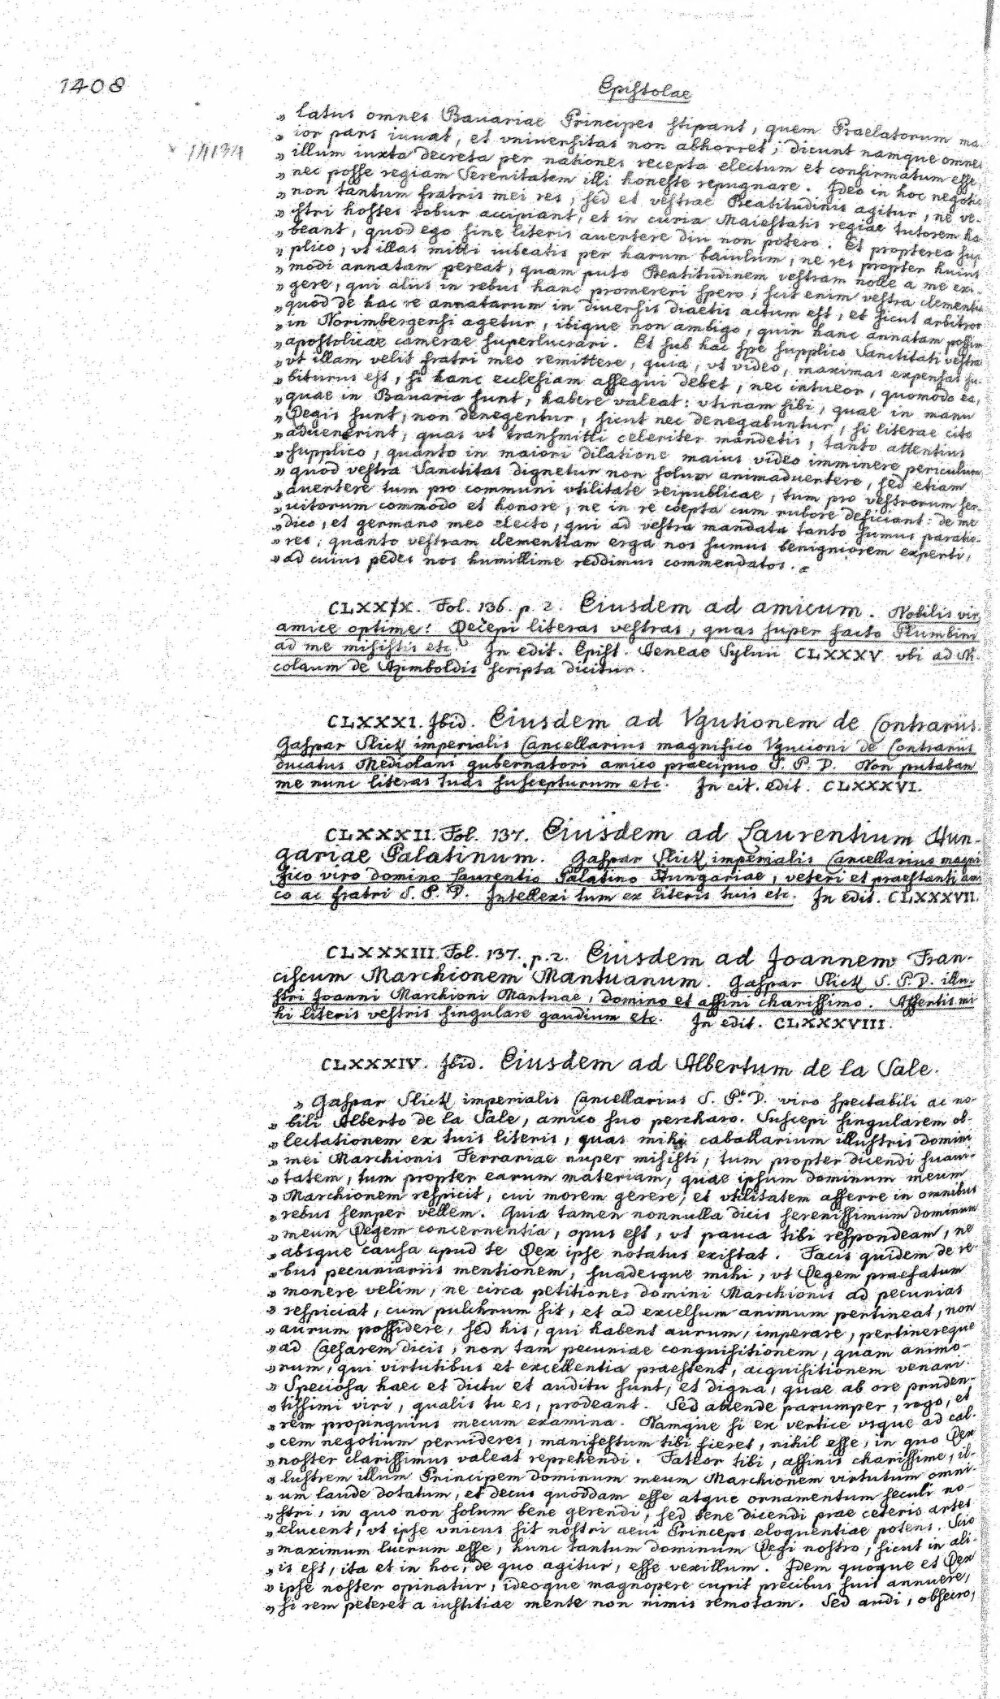 1408
Epistolae
14134
„ latus omnes Bauariae Principes stipant, quem Praelatorum ma-
„ ior pars iuuat, et vniuersitas non abhorret; dicunt namque omnes
„ illum iuxta decreta per nationes recepta electum et confirmatum esse
„ nec posse regiam Serenitatem illi honeste repugnare. Ideo in hoc negotio
„ non tantum fratris mei res, sed et vestrae Beatitudinis agitur, ne ve-
„ stri hostes robur accipiant, et in curia Maiestatis regiae tutorem ha-
„ beant, quod ego sine literis auertere diu non potero. Et propterea sup-
„ plico, vt illas mitti iubeatis per harum baiulum, ne res propter huius
„ modi annatam pereat, quam puto Beatitudinem vestram nolle a me exi-
„ gere, qui aliis in rebus hanc promereri spero; scit enim vestra clementia
„ quod de hac re annatarum in diuersis diaetis actum est, et sicut arbitror
„ in Norimbergensi agetur, ibique non ambigo, quin hanc annatam possim
„ apostolicae camerae superlucrari. Et sub hac spe supplico Sanctitati vestrae
„ vt illam velit fratri meo remittere, quia, vt video, maximas expensas su-
„ biturus est, si hanc ecclesiam assequi debet, nec intueor, quomodo ea,
„ quae in Bauaria sunt, habere valeat: vtinam sibi, quae in manu
„ Regis sunt, non denegentur, sicut nec denegabuntur, si literae cito
„ aduenerint, quas vt transmitti celeriter mandetis, tanto attentius
„ supplico, quanto in maiori dilatione maius video imminere periculum
„ quod vestra Sanctitas dignetur non solum animaduertere, sed etiam
„ auertere tum pro communi vtilitate reipublicae, tum pro vestrorum ser-
„ uitorum commodo et honore, ne in re coepta cum rubore deficiant: de me
„ dico, et germano meo electo, qui ad vestra mandata tanto sumus paratio-
„ res, quanto vestram clementiam erga nos sumus benigniorem experti,
„ ad cuius pedes nos humillime reddimus commendatos.
CLXXX. Fol. 136. p. 2. Eiusdem ad amicum. Nobilis vir
amice optime! Recepi literas vestras, quas super facto Plumbini
ad me misistis etc. In edit. Epist. Aeneae Sylvii CLXXXV vbi ad Ni-
colaum de Arimboldis scripta dicitur.
CLXXXI. Ibid. Eiusdem ad Vgutionem de Contrariis.
Gaspar Slick imperialis Cancellarius magnifico Vgucioni de Contrariis
ducatus Mediolani gubernatori amico praecipuo S. P. D. Non putabam
me nunc literas tuas suscepturum etc. In cit. edit. CLXXXVI.
CLXXXII. Fol. 137. Eiusdem ad Laurentium Hun-
gariae Palatinum. Gaspar Slick imperialis Cancellarius magni
fico viro domino Laurentio Palatino Hungariae, veteri et praestanti ami
co ac fratri S. P. D. Intellexi tum ex literis tuis etc. In edit. CLXXXVII.
CLXXXIII. Fol. 137. p. 2. Eiusdem ad Joannem Fran-
ciscum Marchionem Mantuanum. Gaspar Slick S. P. D. illu-
stri Joanni Marchioni Mantuae, domino et affini charissimo. Assentis mi
hi literis vestris singulare gaudium etc. In edit. CLXXXVIII.
CLXXXIV. Ibid. Eiusdem ad Albertum de la Sale.
„ Gaspar Slick imperialis Cancellarius S. P. D. viro spectabili ac no-
„ bili Alberto de la Sale, amico suo percharo. Suscepi singularem ob-
„ lectationem ex tuis literis, quas mihi caballarium illustris domini
„ mei Marchionis Ferrariae nuper misisti, tum propter dicendi suaui-
„ tatem, tum propter earum materiam, quae ipsum dominum meum
„ Marchionem respicit, cui morem gerere, et vtilitatem afferre in omnibus
„ rebus semper vellem. Quia tamen nonnulla dicis serenissimum dominum
„ meum Regem concernentia, opus est, vt pauca tibi respondeam, ne
„ absque causa apud te Rex ipse notatus existat. Facis quidem de re-
„ bus pecuniariis mentionem, suadesque mihi, vt Regem praefatum
„ monere velim, ne circa petitiones domini Marchionis ad pecunias
„ respiciat, cum pulchrum sit, et ad excelsum animum pertineat, non
„ aurum possidere, sed his, qui habent aurum, imperare, pertinereque
„ ad Caesarem dicis, non tam pecuniae conquisitionem, quam animo-
„ rum, qui virtutibus et excellentia praestent, acquisitionem venari.
„ Speciosa haec et dictu et auditu sunt, et digna, quae ab ore pruden-
„ tissimi viri, qualis tu es, prodeant. Sed attende parumper, rogo, et
„ rem propinquius mecum examina. Namque si ex vertice vsque ad cal-
„ cem negotium peruideres, manifestum tibi fieret, nihil esse, in quo Rex
„ noster clarissimus valeat reprehendi. Fateor tibi, affinis charissime, il-
„ lustrem illum Principem dominum meum Marchionem virtutum omni-
„ um laude dotatum, et decus quoddam esse atque ornamentum seculi no-
„ stri, in quo non solum bene gerendi, sed bene dicendi prae ceteris artes
„ elucent, vt ipse vnicus sit nostri aeui Princeps eloquentiae potens. Scio
„ maximum lucrum esse, hunc tantum dominum Regi nostro, sicut in ali-
„ is est, ita et in hoc, de quo agitur, esse vexillum. Idem quoque et Rex
„ ipse noster opinatur, ideoque magnopere cupit precibus suis annuere,
„ si rem peteret a iustitiae mente non nimis remotam. Sed audi, obsecro,